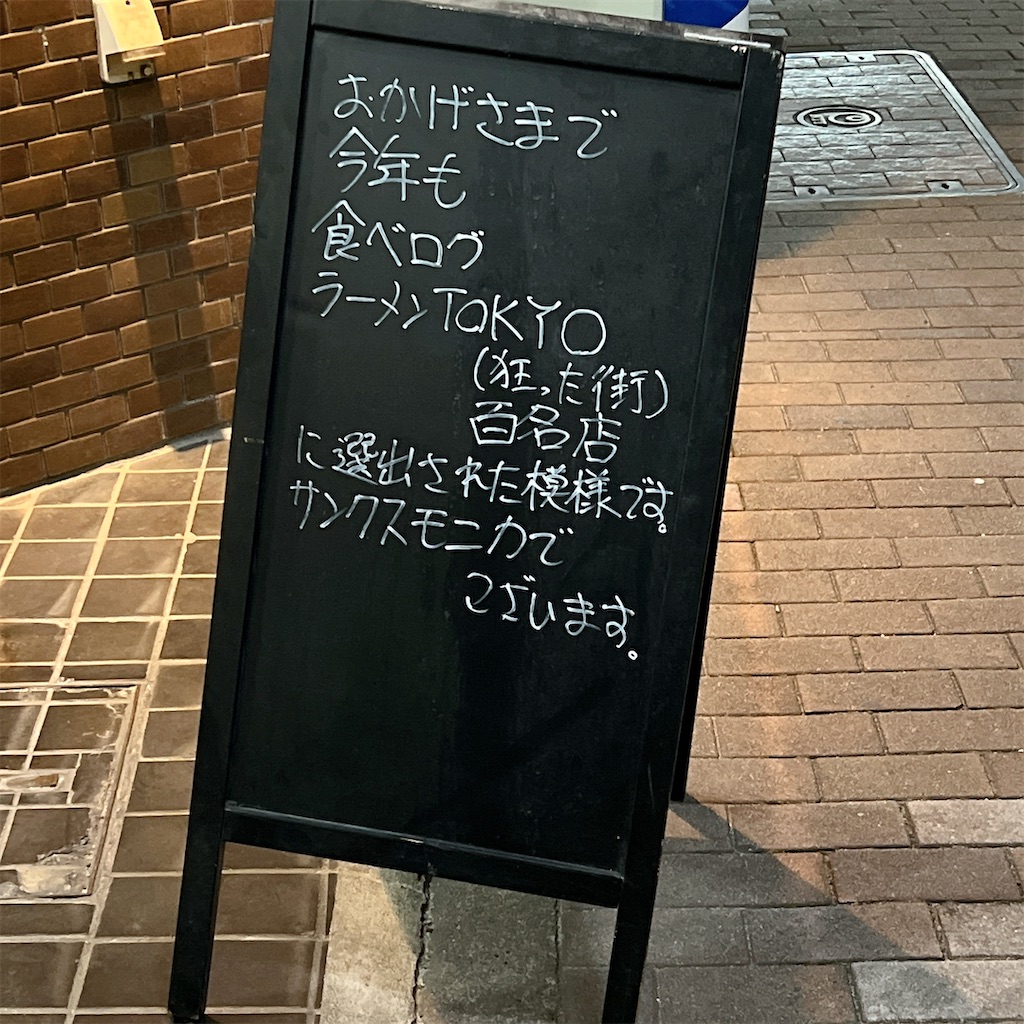 おかげさまで
今年も
食べログ
ラーメンTOKYO
(狂った街)
百名店
に選出された模様です。
サンクスモニカで
ございます。